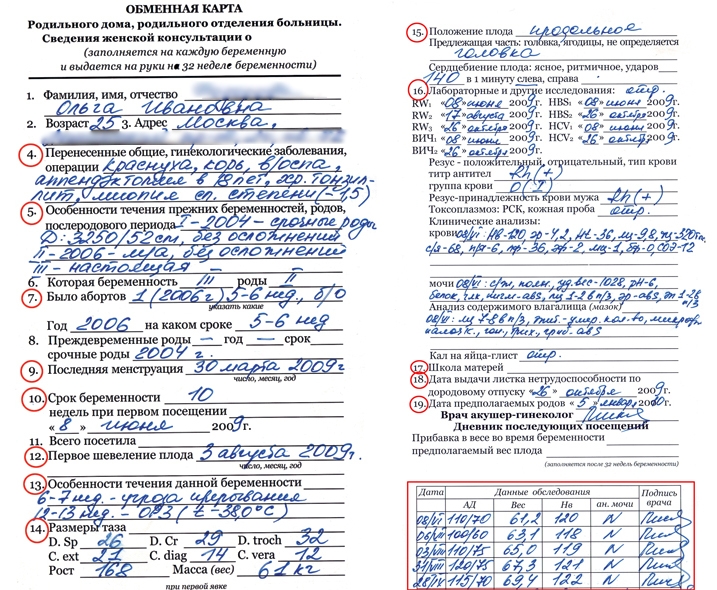 ОБМЕННАЯ КАРТА
Родильного дома, родильного отделения больницы.
Сведения женской консультации о
(заполняется на каждую беременную
и выдается на руки на 32 неделе беременности)
1. Фамилия, имя, отчество
Ольга Ивановна
2. Возраст 25 3. Адрес Москва,
4. Перенесенные общие, гинекологические заболевания,
операции краснуха, корь, в/оспа,
аппендэктомия в 12 лет, хр. тонзил-
лит, миопия сл. степени (-1,5)
5. Особенности течения прежних беременностей, родов,
послеродового периода I - 2004 - срочные роды
3250/52см, без осложнений
II - 2006 - м/а, без осложнений
III - настоящая
6. Которая беременность III роды II
7. Было абортов 1 (2006г) 5-6 нед., б/о
указать какие
Год 2006 на каком сроке 5-6 нед
8. Преждевременные роды — год — срок
срочные роды 2004 г.
9. Последняя менструация 30 марта 2009г
число, месяц, год
10. Срок беременности 10
недель при первом посещении
« 8 » июня 2009г.
11. Всего посетила
12. Первое шевеление плода 3 августа 2009г.
число, месяц, год
13. Особенности течения данной беременности
6-7 нед. - угроза прерывания
12-13 нед. - ОРЗ (t - 38,0°С)
14. Размеры таза
D. Sp 26 D. Cr 29 D. troch 32
C. ext 21 C. diag 14 C. vera 12
Рост 168 Масса (вес) 61 кг
при первой явке
15. Положение плода продольное
Предлежащая часть: головка, ягодицы, не определяется
головка
Сердцебиение плода: ясное, ритмичное, ударов
140 в 1 минуту слева, справа
16. Лабораторные и другие исследования: отр.
RW₁ «08» июня 2009г. HBS₁ «08» июня 2009г.
RW₂ «17» августа 2009г. HBS₂ «26» октября 2009г.
RW₃ «26» октября 2009г. HCV₁ «08» июня 2009г.
ВИЧ₁ «08» июня 2009г. HCV₂ «26» октября 2009г.
ВИЧ₂ «26» октября 2009г.
Резус - положительный, отрицательный, тип крови
титр антител Rh(+)
группа крови 0(I)
Резус-принадлежность крови мужа Rh(+)
Токсоплазмоз: РСК, кожная проба отр.
Клинические анализы:
крови 08/VI: Hв-120, эр-4,2, Ht-36, лц-9,8, тц-320тыс.
с/я-68, п/я-6, лф-36, эф-2, мц-1, бф-0, СОЭ-12
мочи 08/VI: с/ж, полн, уд.вес-1028, рН-6,
белок, глк, нигм-abs, лц 1-2 в п/з, эр-abs, эп 1-2 в
п/з
Анализ содержимого влагалища (мазок)
08/VI: лц 7-8 в п/з, эпит-умер. кол-во,
гон, трих, гриб-abs
Кал на яйца-глист отр.
17. Школа матерей
18. Дата выдачи листка нетрудоспособности по
дородовому отпуску «26» октября 2009г.
19. Дата предполагаемых родов « 5 » января 2010г.
Врач акушер-гинеколог
Дневник последующих посещений
Прибавка в весе во время беременности
предполагаемый вес плода
(заполняется после 32 недель беременности)
Дата Данные обследования Подпись врача
АД Вес Нв ан. мочи
08/VI 110/70 61,2 120 N
06/VII 100/60 63,1 118 N
03/VIII 110/75 65,0 119 N
31/VIII 120/75 67,3 121 N
28/IX 115/70 69,4 122 N